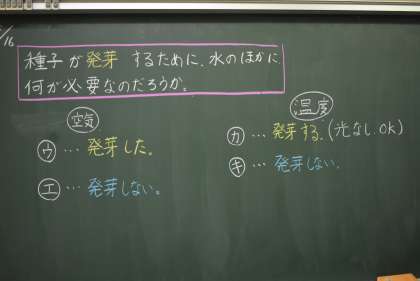 /16
種子が発芽するために、水のほかに
何が必要なのだろうか。
空気
ウ … 発芽した。
エ … 発芽しない。
温度
カ … 発芽する。(光なし.OK)
キ … 発芽しない.